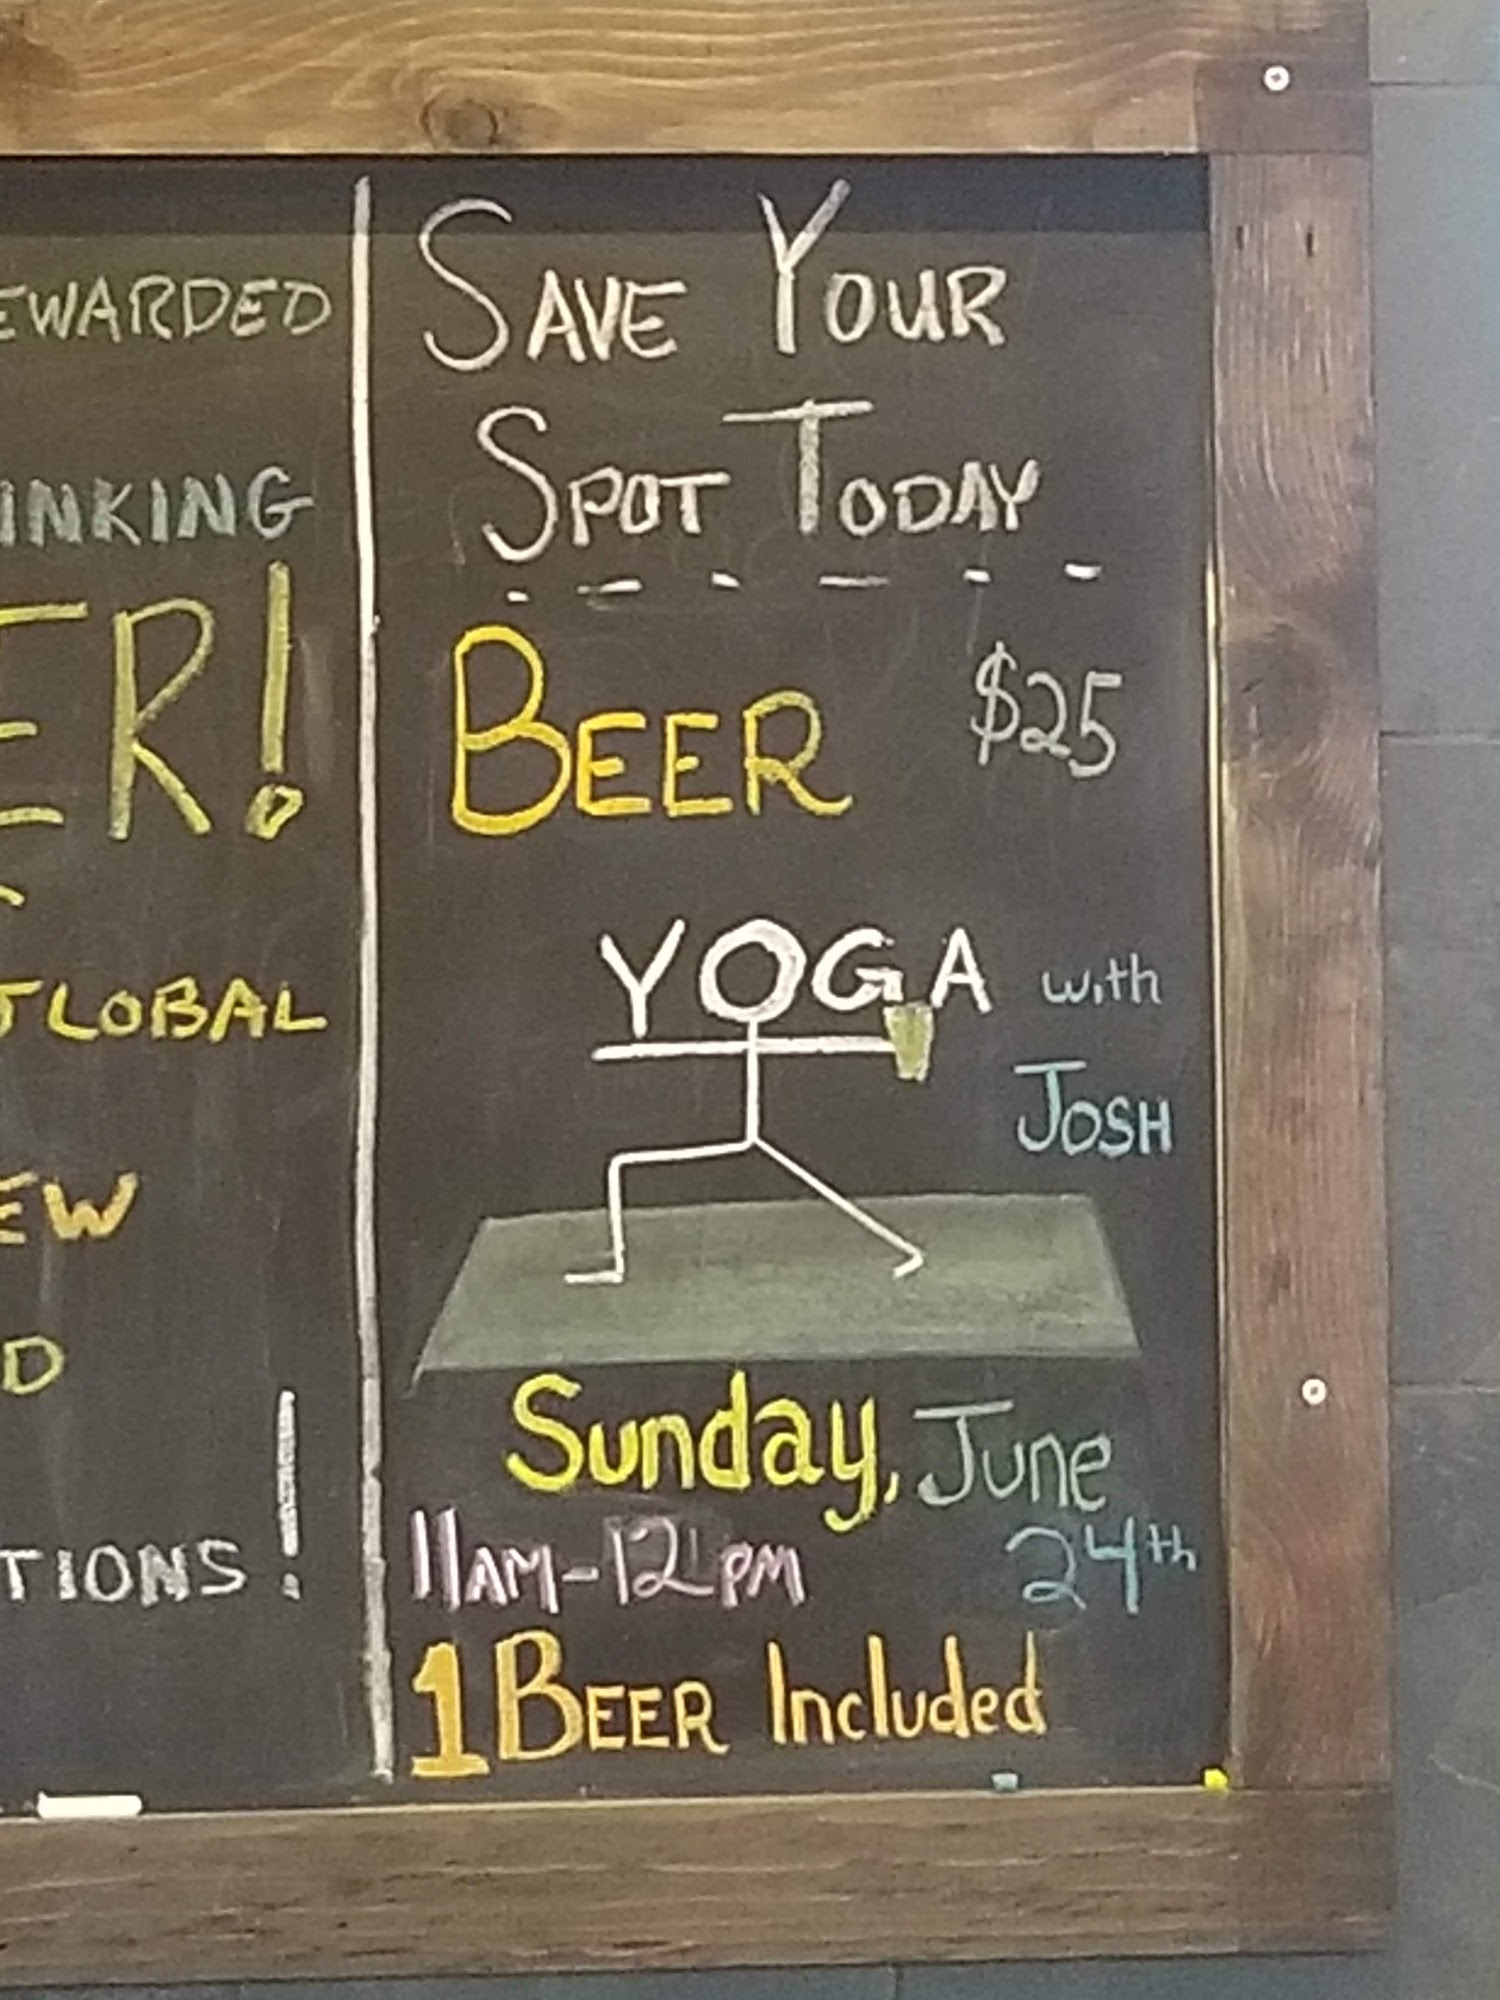 EWARDED
INKING
ER!
GLOBAL
EW
D
TIONS!
SAVE YOUR
SPOT TODAY
BEER $25
YOGA with
JOSH
Sunday, June
11AM-12PM 24th
1 BEER Included